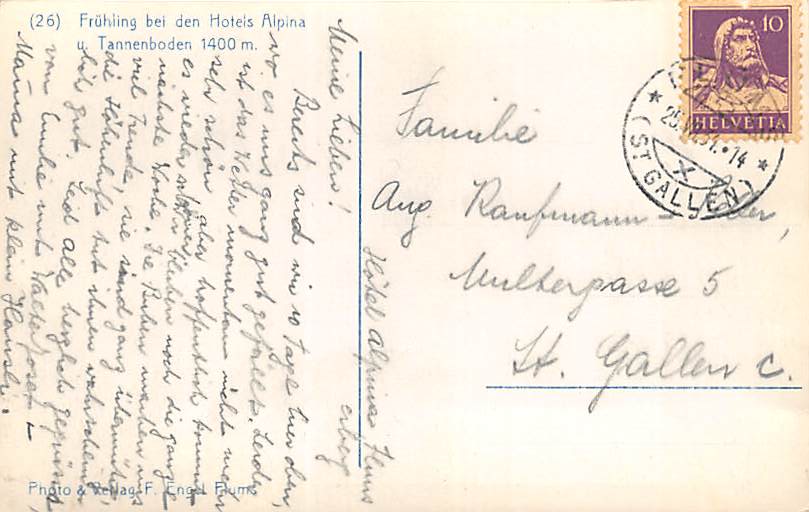 (26) Frühling bei den Hotels Alpina
u. Tannenboden 1400 m.
Meine Lieben!
Bereits sind wir 10 Tage hier oben,
wo es uns ganz gut gefällt. Leider
ist das Wetter momentan nicht mehr
sehr schön, aber hoffentlich kommt
es wieder schöner, bleiben noch die ganze
nächste Woche. Die Buben machen uns
viel Freude, sie sind ganz übermütig,
die Höhenluft tut ihnen wahrscheinl.
sehr gut. Seid alle herzlich gegrüsst
vom
Mama mit klein Hansli.
Hotel Alpina Flums
erberg
Familie
Aug. Kaufmann
Multergasse 5
St. Gallen C.
10
HELVETIA
(ST GALLEN)
Photo & Verlag F. Engel Flums